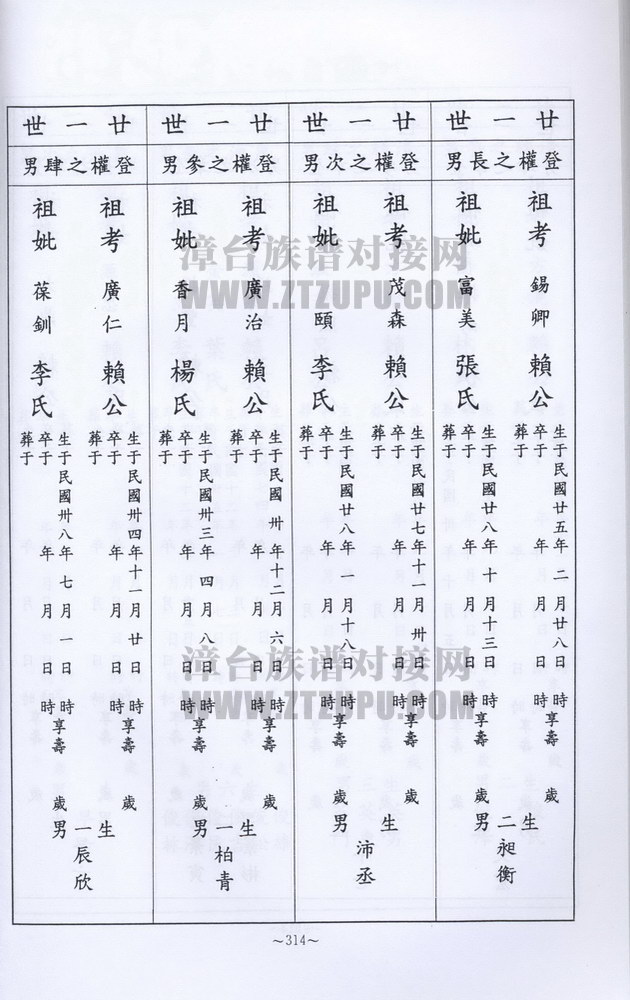 廿一世
登權之長男
祖考 錫卿 賴公
生于民國廿五年二月廿八日時享壽 歲
卒于 年 月 日
葬于
祖妣 富美 張氏
生于民國廿八年十月十三日時享壽 歲
卒于 年 月 日
葬于
生二男
昶衡
廿一世
登權之次男
祖考 茂森 賴公
生于民國廿七年十一月卅日時享壽 歲
卒于 年 月 日
葬于
祖妣 頤 李氏
生于民國廿八年一月十八日時享壽 歲
卒于 年 月 日
葬于
生 男
沛丞
廿一世
登權之參男
祖考 廣治 賴公
生于民國卅年十二月六日時享壽 歲
卒于 年 月 日
葬于
祖妣 香月 楊氏
生于民國卅三年四月八日時享壽 歲
卒于 年 月 日
葬于
生一男
柏青
廿一世
登權之肆男
祖考 廣仁 賴公
生于民國卅四年十一月廿日時享壽 歲
卒于 年 月 日
葬于
祖妣 葆釧 李氏
生于民國卅八年七月一日時享壽 歲
卒于 年 月 日
葬于
生一男
辰欣
漳台族谱对接网
WWW.ZTZUPU.COM
漳台族谱对接网
WWW.ZTZUPU.COM
~314~